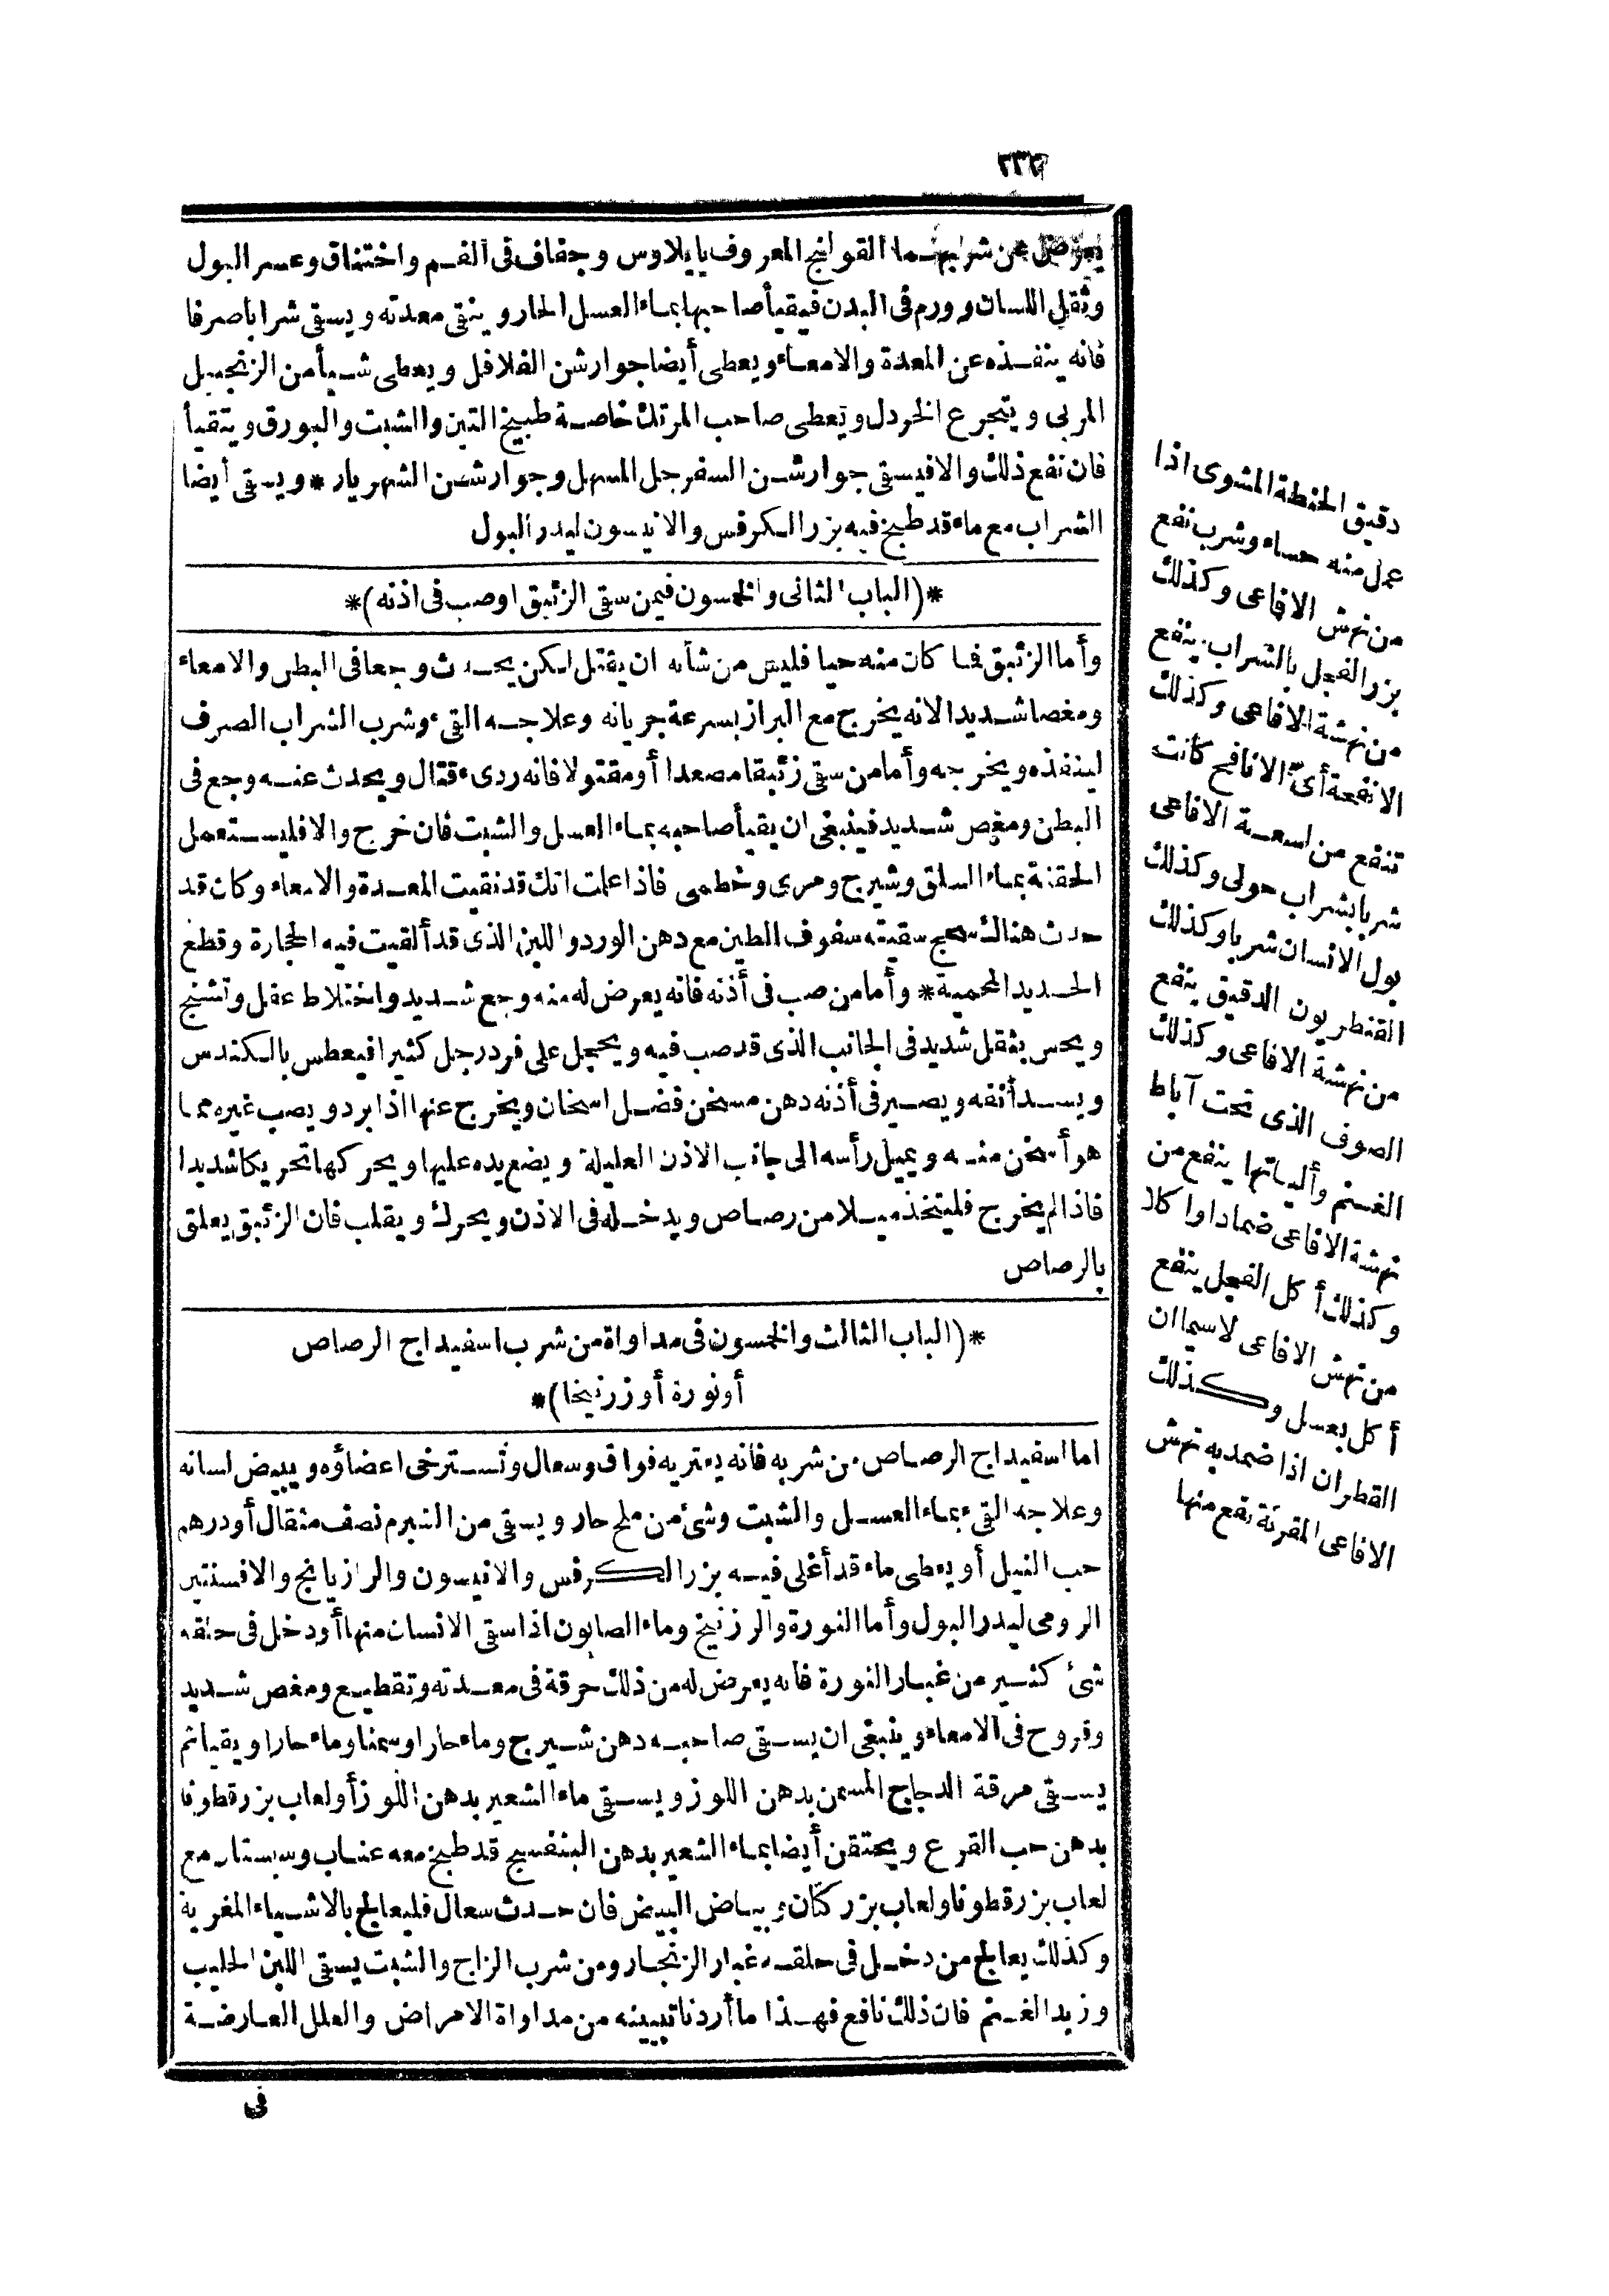 ٢٣٢
يعرض عن شربهما القولنج المعروف بايلاوس وجفاف فى الفم واختناق وعسر البول
وثقل اللسان وورم فى البدن فيقيأ صاحبها بماء العسل الحار وينقى معدته ويسقى شرابا صرفا
فانه ينفذه عن المعدة والامعاء ويعطى أيضا جوارشن الفلافل ويعطى شيأ من الزنجبيل
المربى ويتجرع الخردل وتعطى صاحب المرتك خاصة طبيخ التين والشبت والبورق ويتقيأ
فان نفع ذلك والا فيسقى جوارشن السفرجل المسهل وجوارشن الشهرياز * ويسقى أيضا
الشراب مع ماء قد طبخ فيه بزر الكرفس والانيسون ليدر البول
*(الباب الثانى والخمسون فيمن سقى الزئبق اوصب فى اذنه)*
وأما الزئبق فما كان منه حيا فليس من شأنه ان يقتل لكن يحدث وجعا فى البطن والامعاء
ومغصا شديدا لانه يخرج مع البراز بسرعة جريانه وعلاجه القىء وشرب الشراب الصرف
لينفذه ويخرجه وأما من سقى زئبقا مصعدا أو مقتولا فانه ردىء قتال ويحدث عنه وجع فى
البطن ومغص شديد فينبغى ان يقيأ صاحبه بماء العسل والشبت فان خرج والا فليستعمل
الحقنة بماء السلق وشيرج ومرى وخطمى فاذا علمت انك قد نقيت المعدة والامعاء وكان قد
حدث هناك سحج سقيته سفوف الطين مع دهن الورد واللبن الذى قد ألقيت فيه الحجارة وقطع
الحديد المحمية * وأما من صب فى أذنه فانه يعرض له منه وجع شديد واختلاط عقل وتشنج
ويحس بثقل شديد فى الجانب الذى قد صب فيه ويحجل على فرد رجل كثيرا فيعطس بالكندس
ويسد أنفه ويصير فى أذنه دهن مسخن فضل اسخان ويخرج عنها اذا برد ويصب غيره مما
هو أسخن منه ويميل رأسه الى جانب الاذن العليلة ويضع يده عليها ويحركها تحريكا شديدا
فاذا لم يخرج فليتخذ ميلا من رصاص ويدخله فى الاذن ويحرك ويقلب فان الزئبق يعلق
بالرصاص
*(الباب الثالث والخمسون فى مداواة من شرب اسفيداج الرصاص
أو نورة أو زرنيخا)*
اما اسفيداج الرصاص من شربه فانه يعتريه فواق وسعال وتسترخى اعضاؤه ويبيض لسانه
وعلاجه القىء بماء العسل والشبت وشئ من ملح حار ويسقى من الشبرم نصف مثقال أو درهم
حب النيل أو يعطى ماء قد أغلى فيه بزر الكرفس والانيسون والرازيانج والافسنتين
الرومى ليدر البول وأما النورة والزرنيخ وماء الصابون اذا سقى الانسان منها أو دخل فى حلقه
شئ كثير من غبار النورة فانه يعرض له من ذلك حرقة فى معدته وتقطيع ومغص شديد
وقروح فى الامعاء وينبغى ان يسقى صاحبه دهن شيرج وماء حار اوسمنا وماء حارا ويقيا ثم
يسقى مرقة الدجاج المسمن بدهن اللوز ويسقى ماء الشعير بدهن اللوز أو لعاب بزرقطونا
بدهن حب القرع ويحتقن أيضا بماء الشعير بدهن البنفسج قد طبخ معه عناب وسبستان مع
لعاب بزرقطونا ولعاب بزر كتان وبياض البيض فان حدث سعال فليعالج بالاشياء المغرية
وكذلك يعالج من دخل فى حلقه غبار الزنجار ومن شرب الزاج والشبت يسقى اللبن الحليب
وزبد الغنم فان ذلك نافع فهذا ما أردنا تبيينه من مداواة الامراض والعلل العارضة
فى
دقيق الحنطة المشوى اذا
عمل منه حساء وشرب نفع
من نهش الافاعى وكذلك
بزر الفجل بالشراب ينفع
من نهشة الافاعى وكذلك
الانفحة أىّ الانافح كانت
تنفع من لسعة الافاعى
شربا بشراب حولى وكذلك
بول الانسان شربا وكذلك
القنطريون الدقيق ينفع
من نهشة الافاعى وكذلك
الصوف الذى تحت آباط
الغنم وألياتها ينفع من
نهشة الافاعى ضمادا واكلا
وكذلك أكل الفجل ينفع
من نهش الافاعى لاسيما ان
أكل بعسل وكذلك
القطران اذا ضمد به نهش
الافاعى المقرنة نفع منها